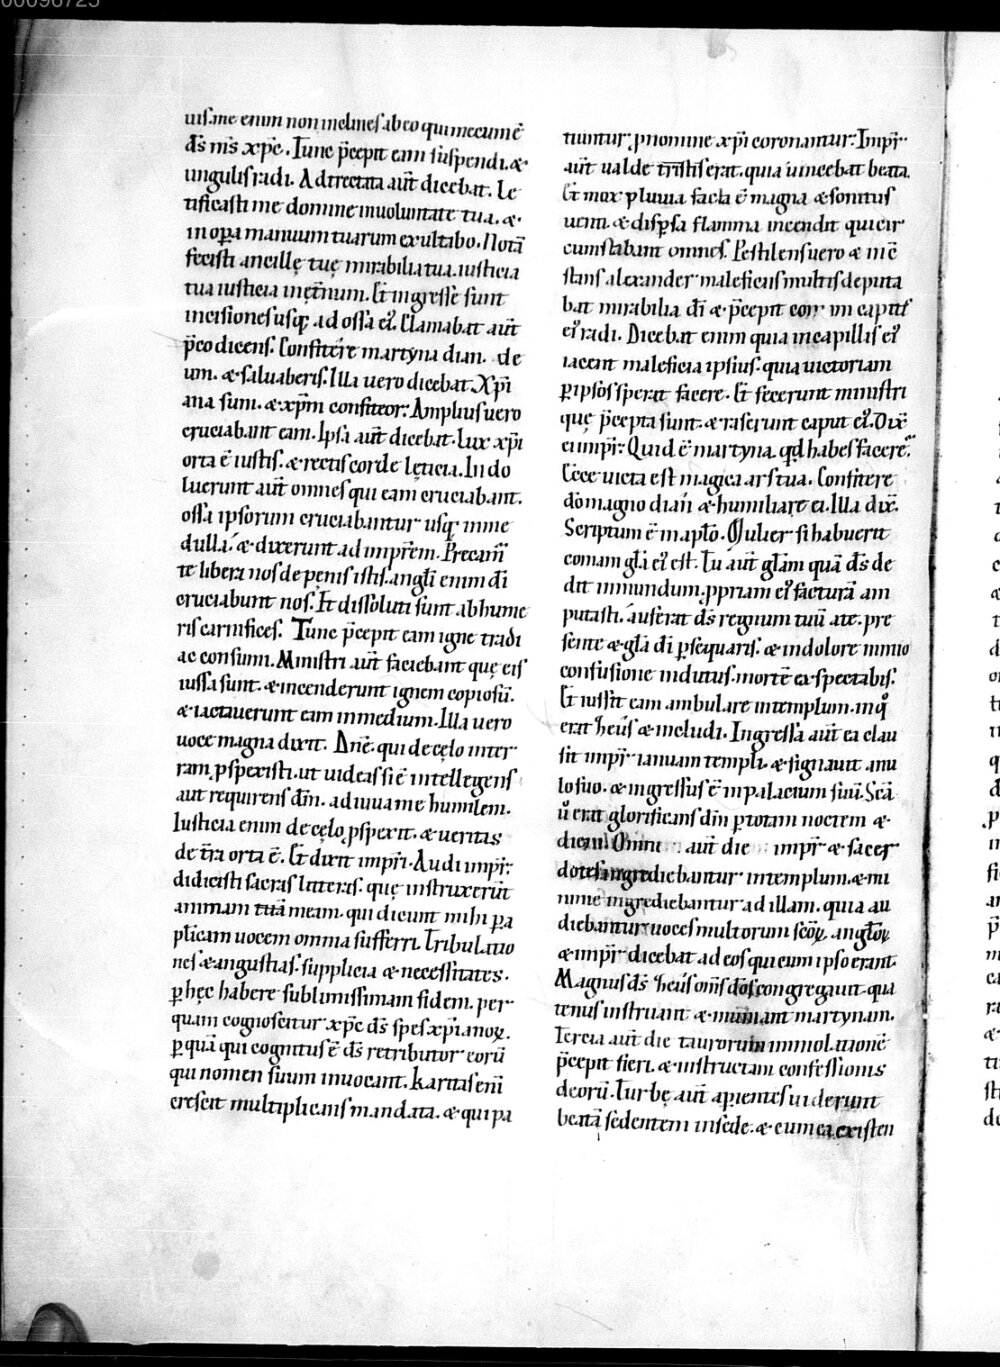 00098725
uis. me enim non inclines ab eo qui mecum ē
dš mš xp̄e. Tunc p̄cepit eam suspendi. &
ungulis radi. Adtrectata aut̄ dicebat. Le
tificasti me domine in uoluntate tua. &
in op̄a manuum tuarum exultabo. Notā
fecisti ancillę tuę mirabilia tua. iusticia
tua iusticia in et̄num. Et ingresse sunt
incisiones usq; ad ossa ei'. Clamabat aut̄
p̄co dicens. Confitere martyna dian. de
um. & saluaberis. Illa uero dicebat. Xp̄i
ana sum. & xp̄m confiteor. Amplius uero
cruciabant eam. Ipsa aut̄ dicebat. Lux xp̄i
orta ē iustis. & rectis corde lęticia. In do
luerunt aut̄ omnes qui eam cruciabant.
ossa ipsorum cruciabantur usq; in me
dulla. & dixerunt ad imprēm. Precam̄
te libera nos de pęnis istis. angli enim dī
cruciabunt nos. Et dissoluti sunt ab hume
ris carnifices. Tunc p̄cepit eam igne tradi
ac consumi. Ministri aut̄ faciebant quę eis
iussa sunt. & incenderunt ignem copiosū.
& iactauerunt eam in medium. Illa uero
uoce magna dixit. Dnē. qui de cęlo in ter
ram ꝓspexisti. ut uideas si ē intellegens
aut requirens dm̄. adiuua me humilem.
Iusticia enim de cęlo ꝓspexit. & ueritas
de tr̄a orta ē. Et dixit impr̄i. Audi impr̄.
didicisti sacras litteras. quę instruxerūt
animam tuā meam. qui dicunt mihi ꝑ a
pl̄icam uocem omnia sufferri. Tribulatio
nes & angustias. supplicia & necessitates.
ꝑ hęc habere sublimissimam fidem. per
quam cognoscitur xp̄c dš spes xp̄ianoꝝ.
ꝑ quā qui cognitus ē dš retributor eorū
qui nomen suum inuocant. Karitas enī
crescit multiplicans mandata. & qui pa
tiuntur ꝓ nomine xp̄i coronantur. Impr̄
aut̄ ualde tristis erat. quia uincebat beata.
Et mox pluuia facta ē magna & sonitus
uenti. & disp̄sa flamma incendit qui cir
cumstabant omnes. Pestilens uero & inc̄
stans alexander maleficiis multis deputa
bat mirabilia dī & p̄cepit com im capitis
ei' radi. Dicebat enim quia in capillis ei'
iacent maleficia ipsius. quia uictoriam
ꝑ ipsos sperat facere. Et fecerunt ministri
quę p̄cepta sunt. & raserunt caput ei'. Dix̄
ei impr̄. Quid ē martyna. qd habes facere?
Ecce uicta est magica ars tua. Confitere
dō magno dian̄ & humiliare ei. Illa dix̄.
Scriptum ē in aplo. Mulier si habuerit
comam gl̄a ei' est. Tu aut̄ gl̄am quā dš de
dit in mundum. ꝓpriam ei' facturā am
putasti. auferat dš regnum tuū a te. pre
sente & gl̄a dī ꝑsequaris. & in dolore nimio
confusione indutus. mortē exspectabis.
Et iussit eam ambulare in templum. in q̊
erat heus & includi. Ingressa aut̄ ea clau
sit impr̄ ianuam templi. & signauit anu
lo suo. & ingressus ē in palacium suū. Scā
ů erat glorificans dm̄ ꝑ totam noctem &
diem. Omni aut̄ die impr̄ & sacer
dotes ingrediebantur in templum. & mi
nime ingrediebantur ad illam. quia au
diebantur uoces multorum scōꝝ angloꝝ
& impr̄ dicebat ad eos qui cum ipso erant.
Magnus dš heus oms dōs congregauit. qua
tenus instruant & muniant martynam.
Tercia aut̄ die taurorum immolationē
p̄cepit fieri. & instructam confessionis
deorū. Turbę aut̄ apientes uiderunt
beatā sedentem in sede. & cum ea existen